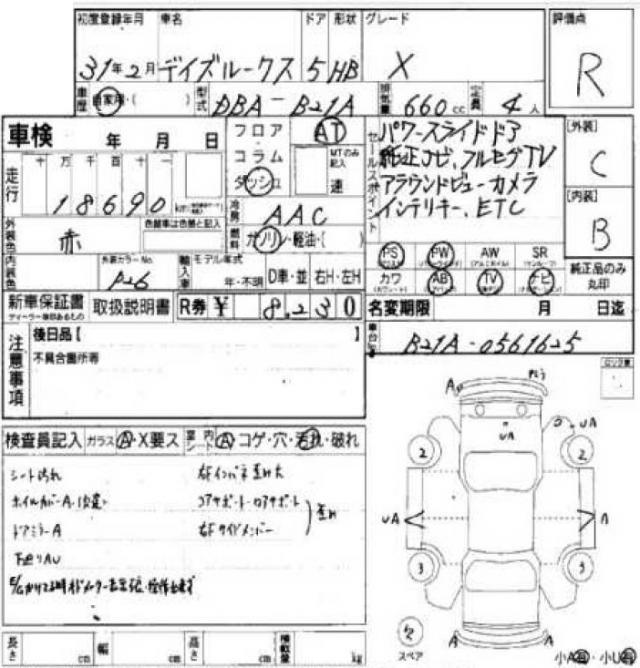 初度登録年月 車名 ドア 形状 グレード 評価点
31年2月 デイズルークス 5 HB X R
車歴 自家用・( ) 型式 DBA-B21A 排気量 660cc 定員 4人
車検 年 月 日
フロア・コラム ダッシュ AT MTのみ記入 速
セールスポイント
パワースライドドア
純正ナビ、フルセグTV
アラウンドビューカメラ
インテリキー、ETC
[外装] C
[内装] B
走行 十 万 千 百 十 一
18690
冷房 AAC
外装色 赤 色替車は色替と記入
燃料 ガソリン・軽油・( )
PS PW AW SR
カワ AB TV ナビ
純正品のみ丸印
内装色 外装カラーNo. 輸入車 モデル年式 年・不明 D車・並 右H・左H
新車保証書 取扱説明書 R券 ¥ 8,230
名変期限 月 日迄
後日品【 】
車台No. B21A-0561625
注意事項 不具合箇所等
検査員記入 ガラス A・X要ス 内 A コゲ・穴・汚れ・破れ
シート汚れ 右Fインパネ歪み大
ホイルカバーA コアサポート・ロアサポート 歪み
ドアミラーA 右Fサイドメンバー
下廻りAU
A UA UA 2 2
UA A
3 3
A A
スペア
長さ cm 幅 cm 高さ cm 積載量 kg
小A 小U